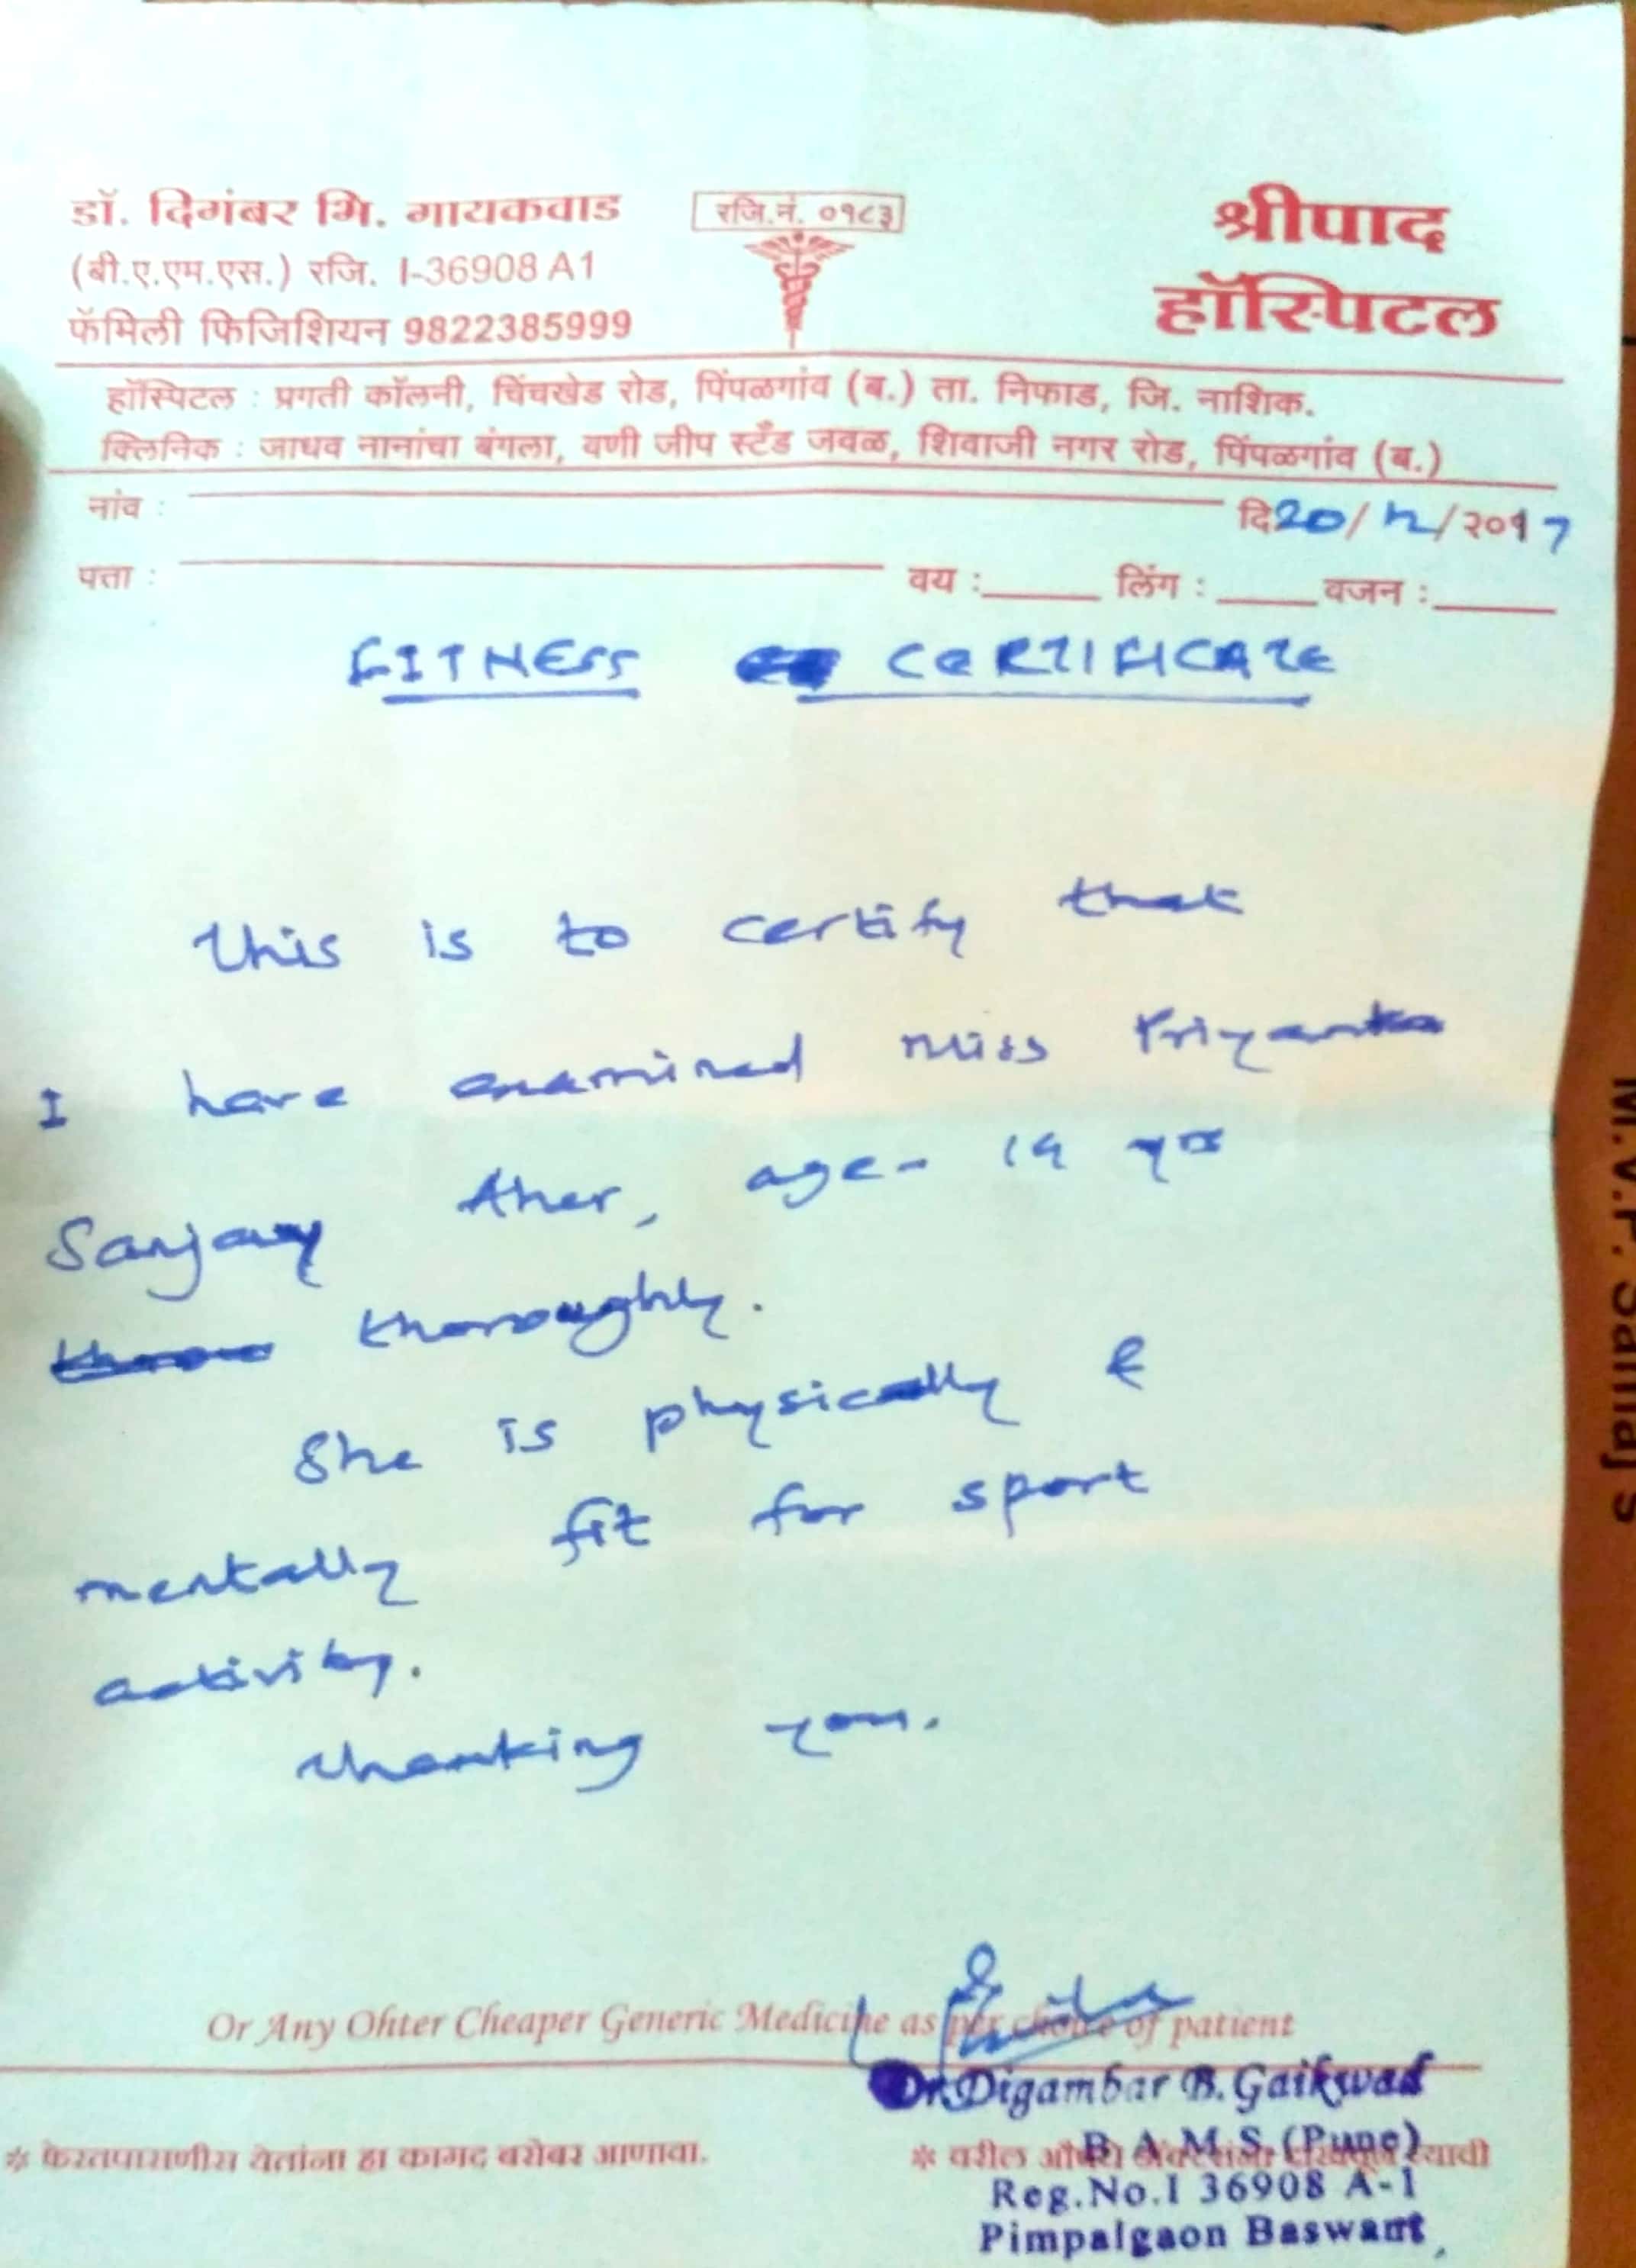 डॉ. दिगंबर भि. गायकवाड
(बी.ए.एम.एस.) रजि. I-36908 A1
फॅमिली फिजिशियन 9822385999
रजि.नं. ०१८३
श्रीपाद
हॉस्पिटल
हॉस्पिटल : प्रगती कॉलनी, चिंचखेड रोड, पिंपळगांव (ब.) ता. निफाड, जि. नाशिक.
क्लिनिक : जाधव नानांचा बंगला, वणी जीप स्टँड जवळ, शिवाजी नगर रोड, पिंपळगांव (ब.)
नांव : दि 20/12/२०१7
पत्ता : वय : लिंग : वजन :
FITNESS CERTIFICATE
This is to certify that
I have examined Miss Priyanka
Sanjay Aher, age - 19 yrs
thoroughly.
She is physically &
mentally fit for sport
activity.
Thanking you.
Or Any Ohter Cheaper Generic Medicine as per choice of patient
Dr. Digambar B. Gaikwad
B. A. M. S. (Pune)
Reg.No.I 36908 A-1
Pimpalgaon Baswant
* फेरतपासणीस येतांना हा कागद बरोबर आणावा.
* वरील औषधे
M.V.P. Samaj's